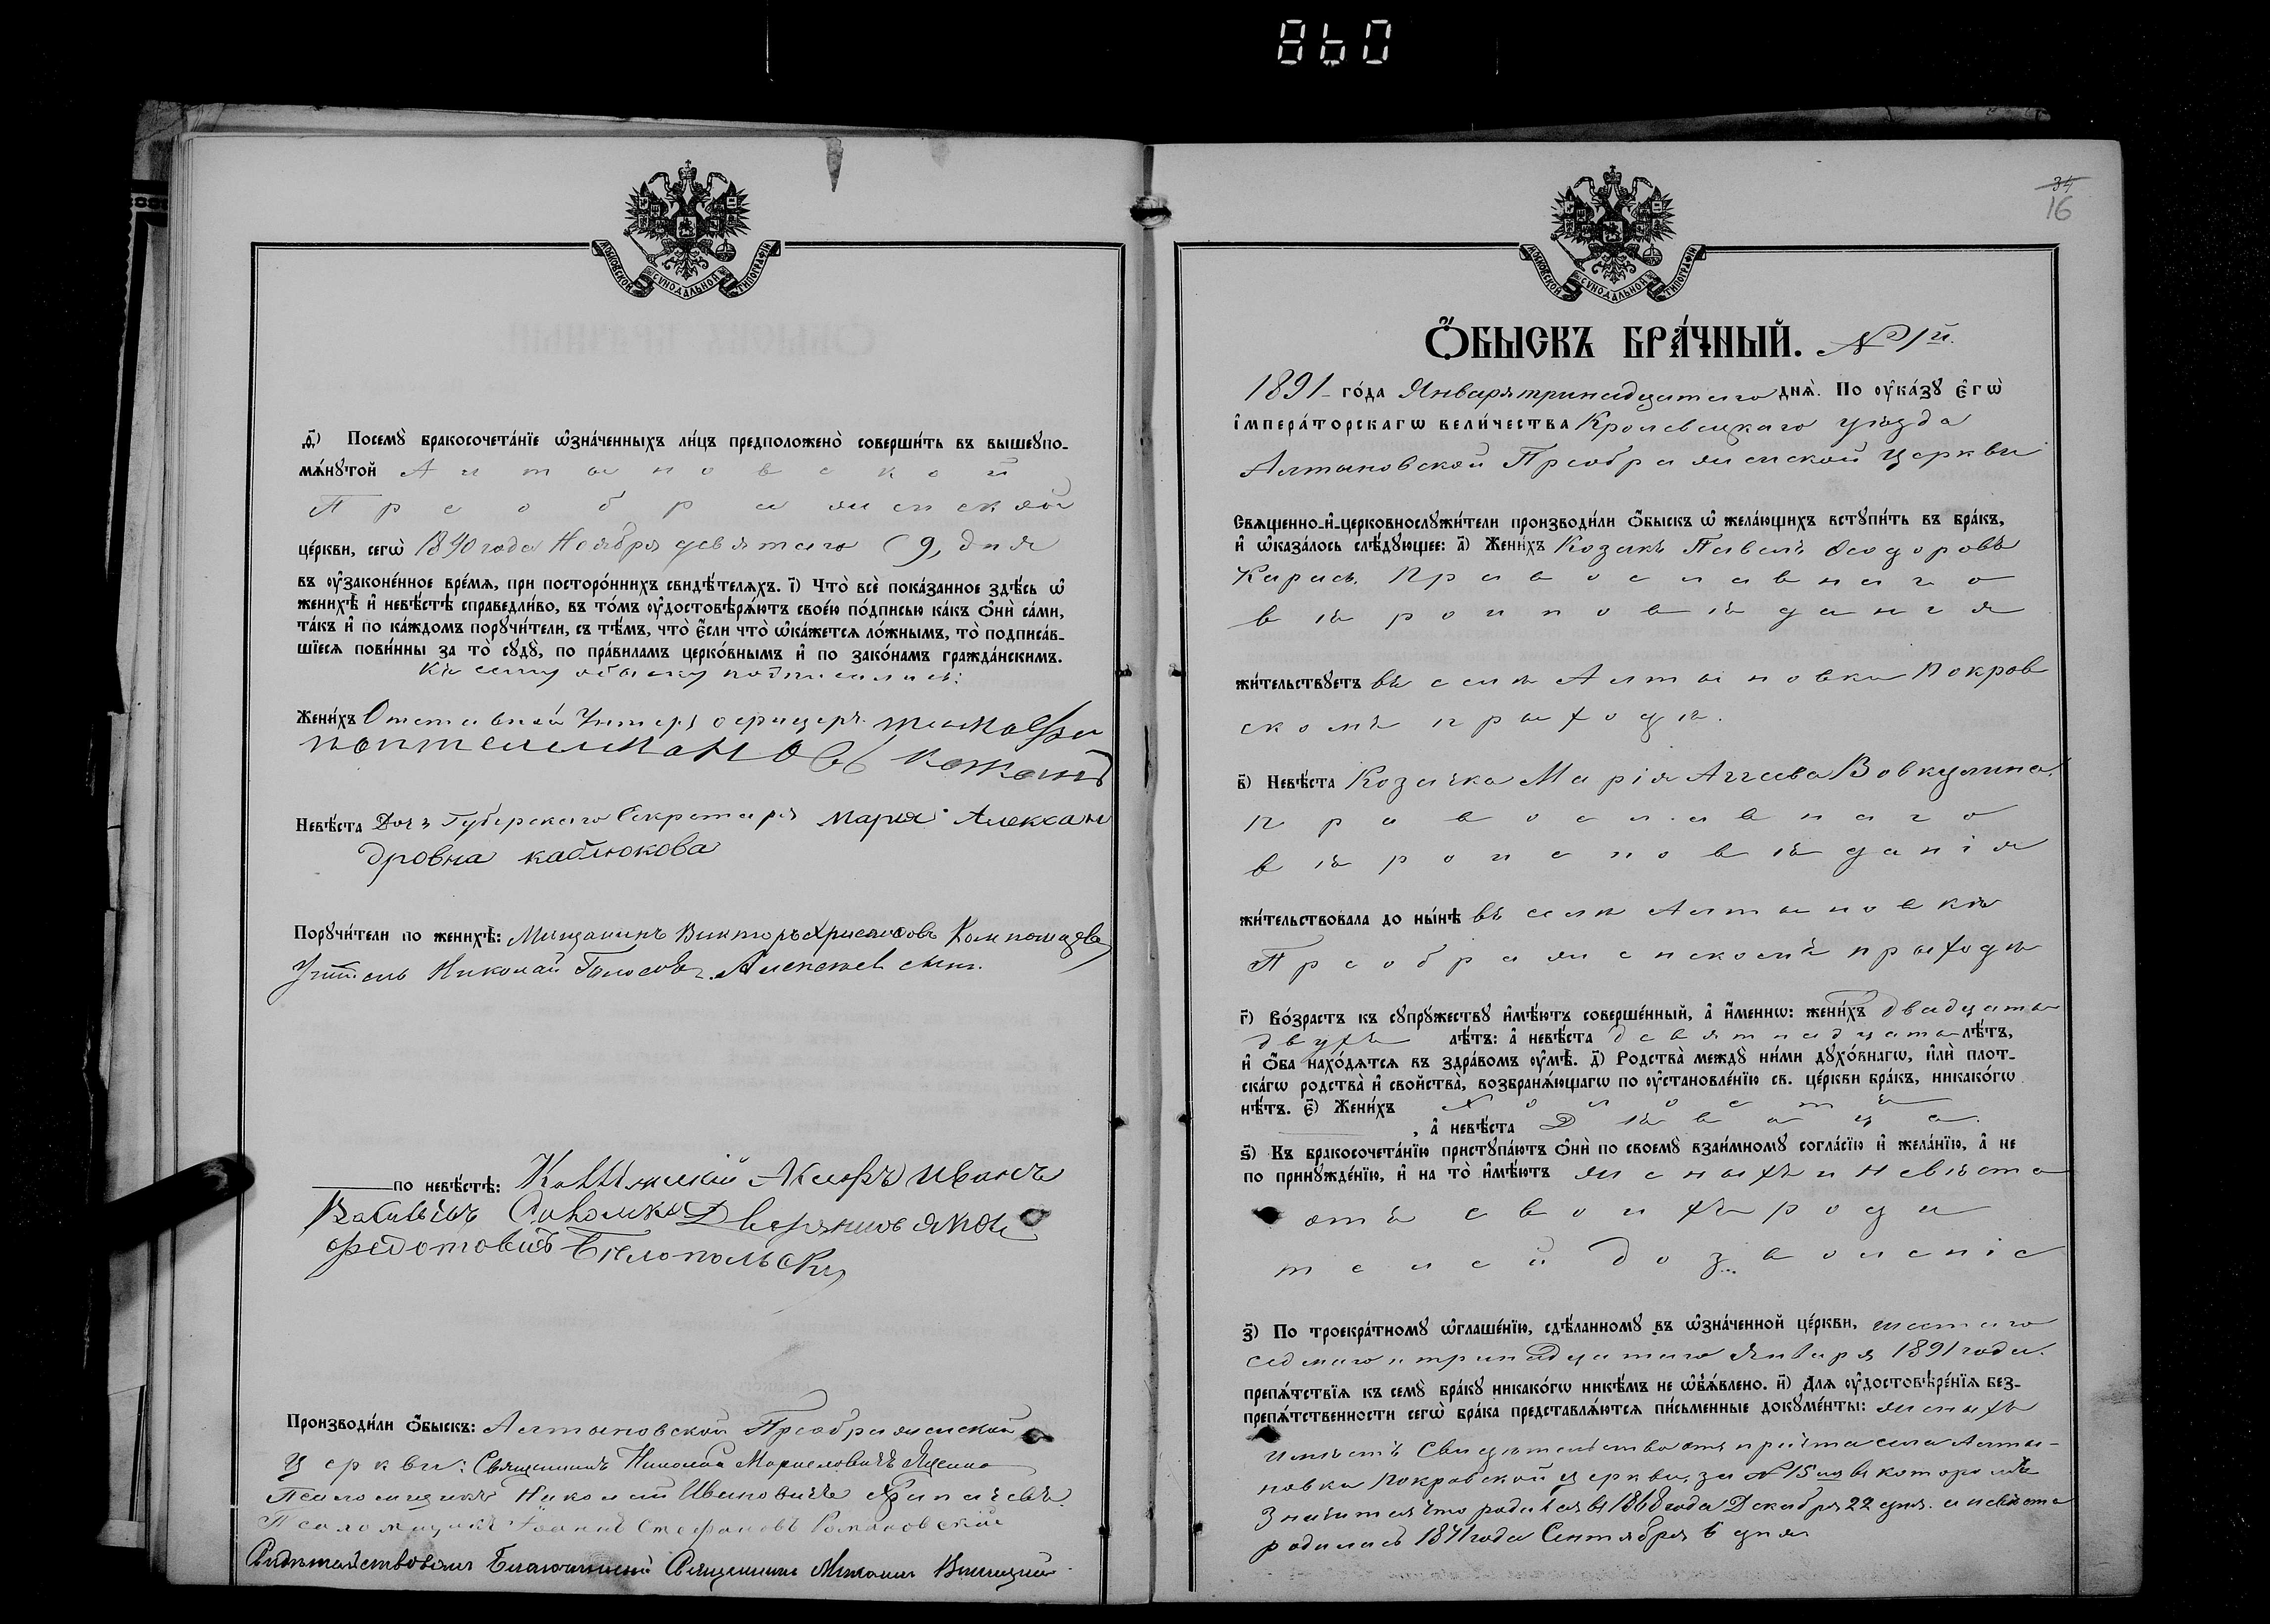 860
МОСКОВСКОЙ СѴНОДАЛЬНОЙ ТИПОГРАФІИ
ѳ҃) Посемꙋ̀ бракосочета́нїе ѡ҆зна́ченныхъ ли́цъ предположено̀ соверши́ть въ вышеꙋпо-
мѧ́нꙋтой Алтыновской
Преображенской
це́ркви, сегѡ̀ 1890 года Ноября девятаго (9, дня
въ оу҆законе́нное вре́мѧ, при посторо́ннихъ свидѣ́телѧхъ. і҃) Что̀ всѐ пока́занное здѣ́сь ѡ҆
женихѣ̀ и҆ невѣ́стѣ справедли́во, въ то́мъ оу҆достовѣрѧ́ютъ свое́ю по́дписью ка́къ ѻ҆нѝ са́ми,
та́къ и҆ по ка́ждомъ порꙋчи́тели, съ тѣ́мъ, что̀ є҆́сли что̀ ѡ҆ка́жетсѧ ло́жнымъ, то̀ подписа́в-
шїесѧ пови́нны за то̀ сꙋдꙋ̀, по пра́виламъ церко́внымъ и҆ по зако́намъ гражда́нскимъ.
Къ сему обыску подписались:
Жени́хъ Отставной Унтеръ офицеръ
Невѣ́ста Дочь Губерскаго Секретаря Мария Алексан
дровна каблюкова
Порꙋчи́тели по женихѣ̀: Мѣщанинъ Викторъ
Учитель Николай Алексѣев сынъ.
по невѣ́стѣ: Иванъ
Дворянинъ
федотовичъ Бѣлопольский
Производи́ли ѻ҆́быскъ: Алтыновской Преображенской
Церкви: Священникъ Николай Яценко
Псаломщикъ Николай Ивановичъ
Псаломщикъ Іоаннъ Стефановъ Романовский
Свидѣтельствовалъ Благочинный Священникъ Михаилъ
34
16
МОСКОВСКОЙ СѴНОДАЛЬНОЙ ТИПОГРАФІИ
Ѻ҆́БЫСКЪ БРА́ЧНЫЙ. № 1й.
1891 го́да Января тринадцатаго днѧ̀. По оу҆ка́зꙋ є҆гѡ̀
і҆мпера́торскагѡ вели́чества Кролевецкаго уѣзда
Алтыновской Преображенской Церкви
Свѧще́нно-и҆-церковнослꙋжи́тели производи́ли ѻ҆́быскъ ѡ҆ жела́ющихъ встꙋпи́ть въ бра́къ,
и҆ ѡ҆каза́лось слѣ́дꙋющее: а҃) Жени́хъ Козакъ Павелъ Ѳеодоровъ
Карась. Православнаго
вѣроисповѣдания
жи́тельствꙋетъ въ селѣ Алтыновки Покров
скомъ приходѣ.
в҃) Невѣ́ста Козачка Марія Аггеева Вовкулина.
православнаго
вѣроисповѣданія
жи́тельствовала до ны́нѣ въ селѣ Алтыновкѣ
Преображенскомъ приходѣ
г҃) Во́зрастъ къ сꙋпрꙋ́жествꙋ и҆мѣ́ютъ соверше́нный, а҆ и҆́менно: жени́хъ двадцати
двухъ лѣ́тъ: а҆ невѣ́ста девятнадцати лѣ́тъ,
и҆ ѻ҆́ба нахо́дѧтсѧ въ здра́вомъ оу҆мѣ̀. д҃) Родства̀ междꙋ̀ ни́ми дꙋхо́внагѡ, и҆лѝ плот-
ска́гѡ родства̀ и҆ свойства̀, возбранѧ́ющагѡ по оу҆становле́нїю св. це́ркви бра́къ, никако́гѡ
нѣ́тъ. є҃) Жени́хъ Холостъ
, а҆ невѣ́ста Дѣвица.
ѕ҃) Къ бракосочета́нїю пристꙋпа́ютъ ѻ҆нѝ по своемꙋ̀ взаи́мномꙋ согла́сїю и҆ жела́нїю, а҆ не
по принꙋжде́нїю, и҆ на то̀ и҆мѣ́ютъ женихъ и невѣста
отъ своихъ роди
телей дозволеніе
з҃) По троекра́тномꙋ ѡ҆глаше́нїю, сдѣ́ланномꙋ въ ѡ҆зна́ченной це́ркви, шестаго
седмаго и тринадцатаго Января 1891 года.
препѧ́тствїѧ къ семꙋ̀ бра́кꙋ никако́гѡ никѣ́мъ не ѡ҆б̾ѧ́влено. и҃) Длѧ оу҆достовѣре́нїѧ без-
препѧ́тственности сегѡ̀ бра́ка представлѧ́ютсѧ пи́сьменные докꙋме́нты: женихъ
имѣетъ Свидѣтельство отъ причта села Алты-
новки Покровской церкви, за № 15 въ которомъ
Значится что родился 1868 года Декабря 22 дня. а невѣста
родилась 1871 года Сентября 6 дня